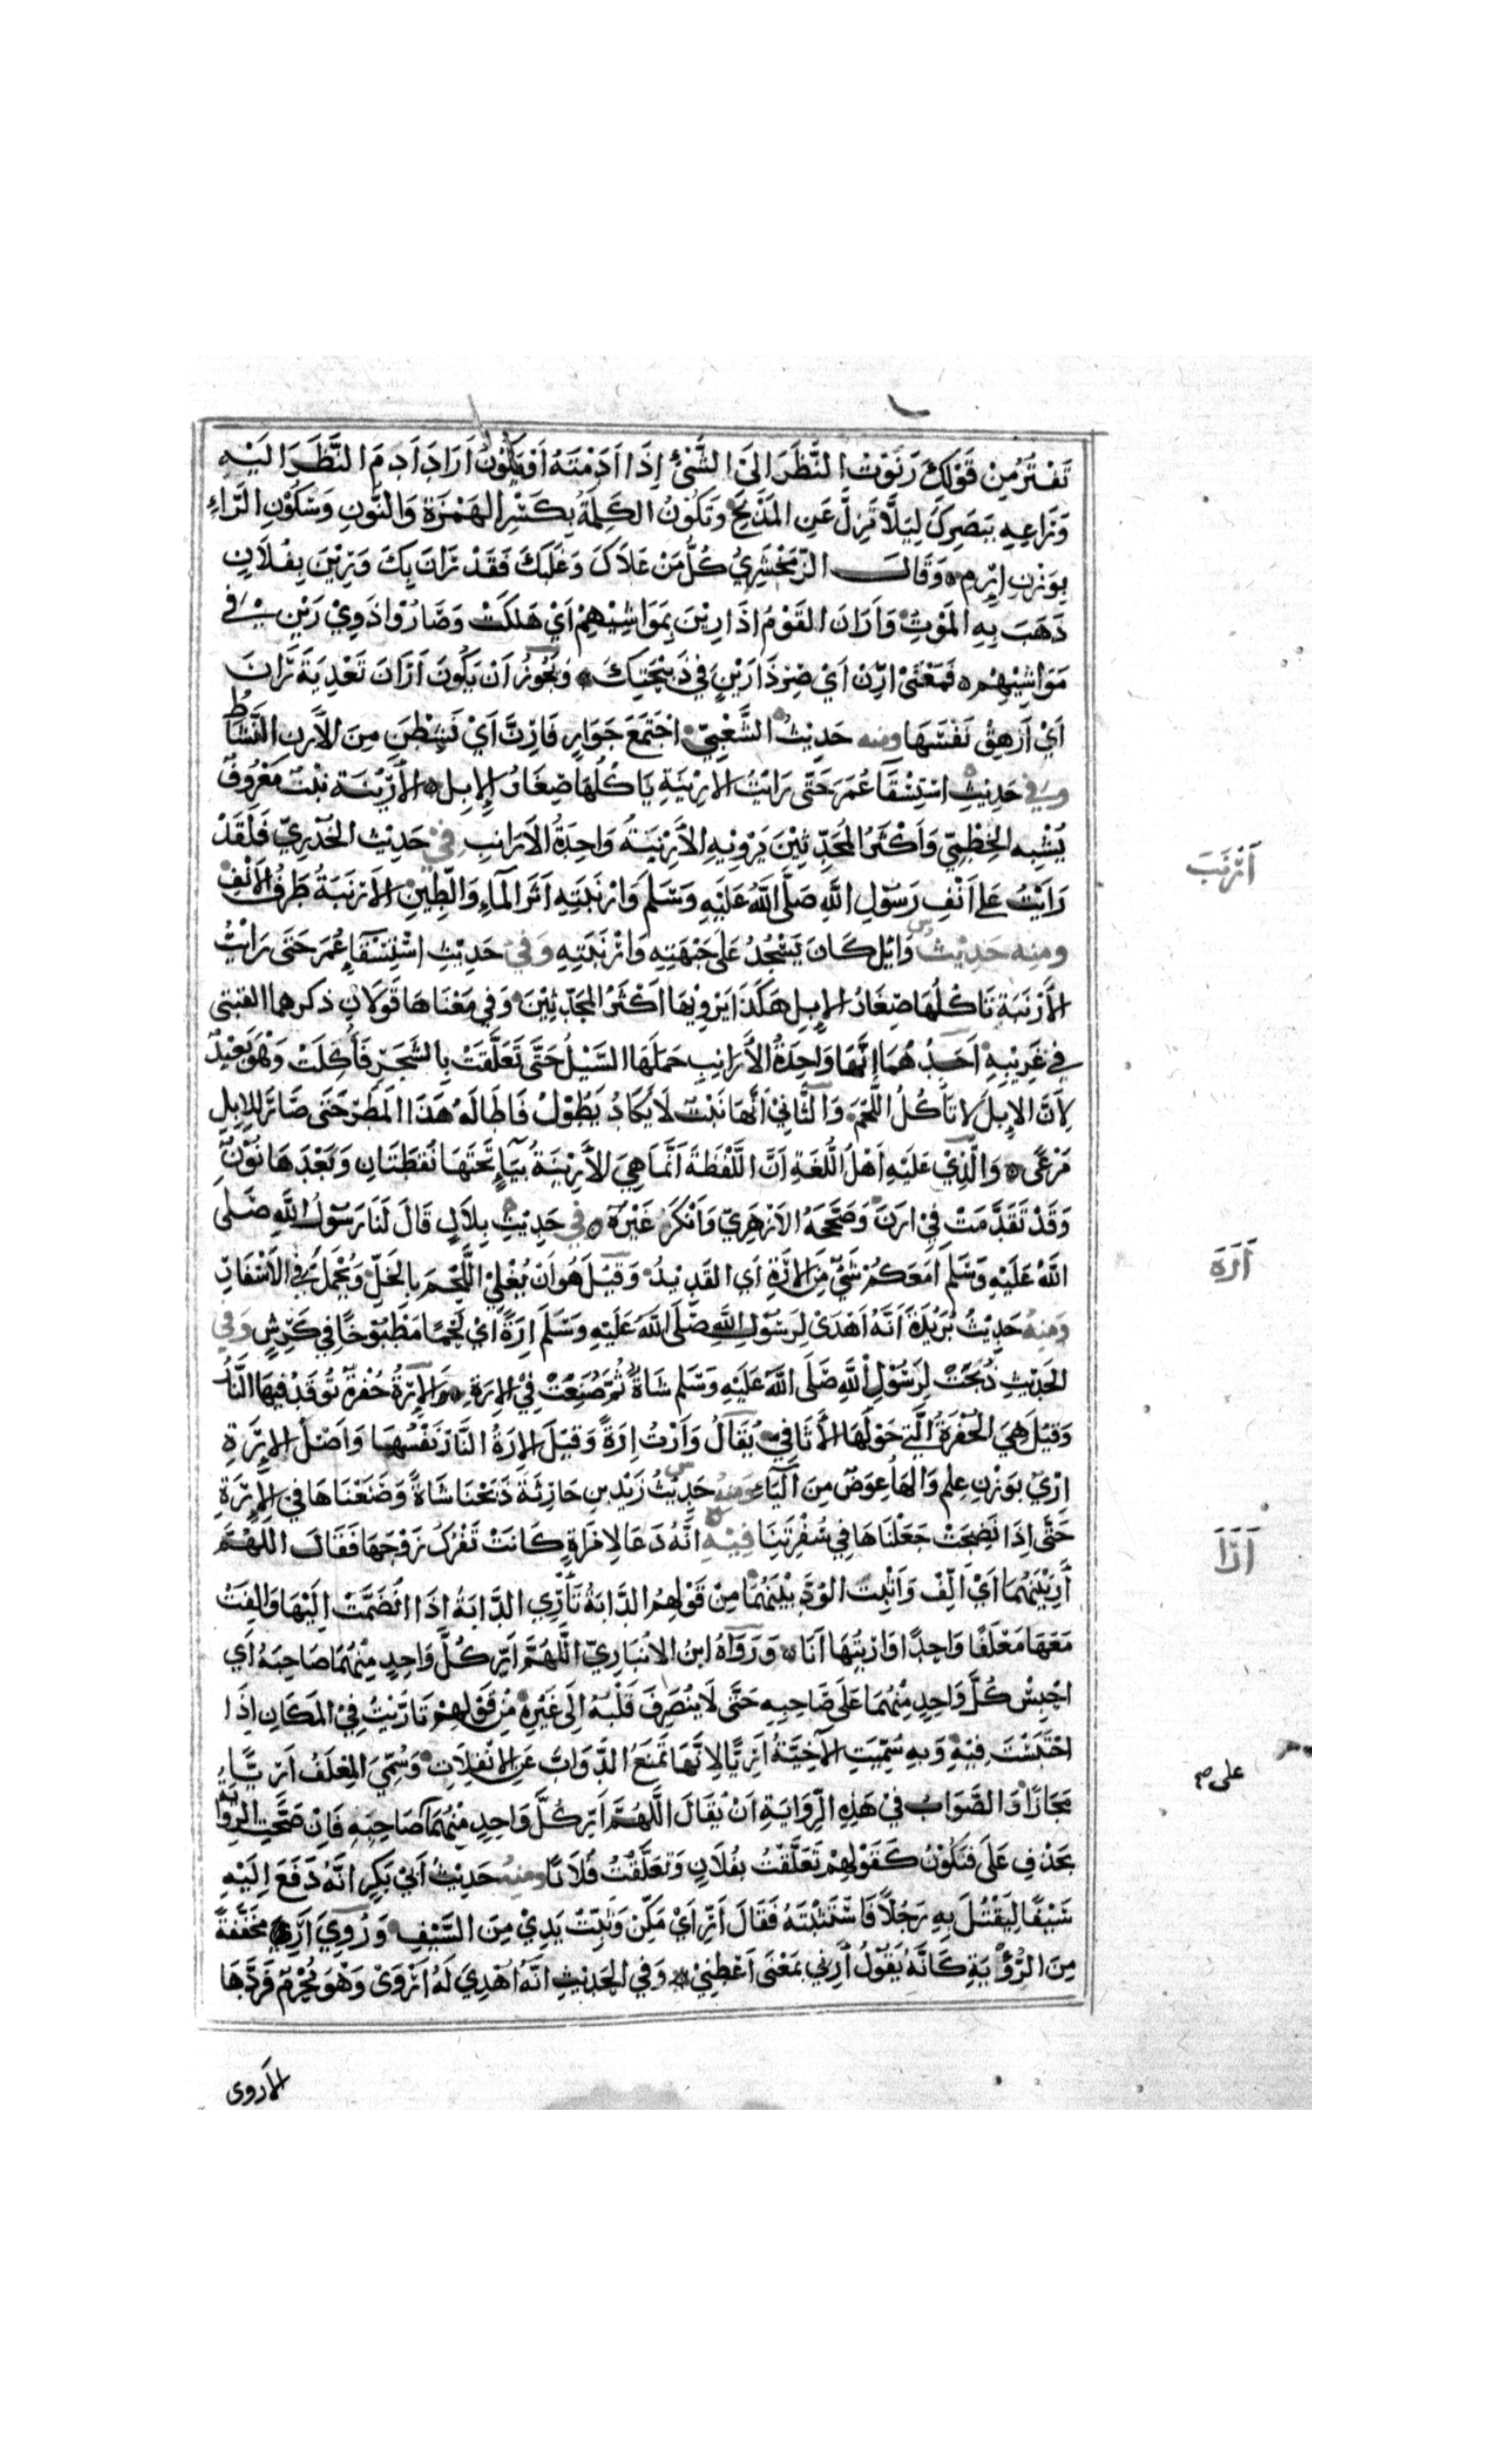 تَفْتُرْ مِنْ قَوْلِكَ رَنَوْتُ النَّظَرَ اِلَى الشَّيْءِ اِذَا اَدَمْتَهُ اَوْ يَكُوْنُ اَرَادَ اَدِمِ النَّظَرَ اِلَيْهِ
وَرَاعِيهِ بِبَصَرِكَ لِيَلَّا تَزِلَّ عَنِ المَذْبَحِ وَتَكُوْنُ الكَلِمَةُ بِكَسْرِ الهَمْزَةِ وَالنُّونِ وَسُكُوْنِ الرَّاءِ
بِوَزْنِ اِرْمِ ه وَقَالَ الزَّمَخْشَرِيُّ كُلُّ مَنْ عَلَاكَ وَغَلَبَكَ فَقَدْ رَانَ بِكَ وَرِيْنَ بِفُلَانٍ
ذَهَبَ بِهِ المَوْتُ وَاَرَانَ القَوْمُ اِذَا رِيْنَ بِمَوَاشِيْهِمْ اَيْ هَلَكَتْ وَصَارُوْا ذَوِيْ رَيْنٍ فِي
مَوَاشِيْهِمْ ه فَمَعْنَى اَرِنْ اَيْ صِرْ ذَا رَيْنٍ فِي ذَبِيْحَتِكَ ه وَيَجُوزُ اَنْ يَكُونَ اَرَانَ تَعْدِيَةَ رَانَ
اَيْ اَزْهِقْ نَفْسَهَا ومنه حَدِيْثُ الشَّعْبِيِّ اجْتَمَعَ جَوَارٍ فَاَرِنَّ اَيْ نَشِطْنَ مِنَ الْاَرَنِ النَّشَاطُ
وَفِي حَدِيْثِ اسْتِسْقَآءِ عُمَرَ حَتَّى رَاَيْتُ الاَرِيْنَةَ يَاكُلُهَا صِغَارُ الإِبِلِ ه الأَرِيْنَة نَبْتٌ مَعْرُوفٌ
يُشْبِه الخِطْمِيَّ وَاَكْثَرُ المُحَدِّثِيْنَ يَرْوِيْهِ الأَرْنَبَةُ وَاحِدَةُ الاَرَانِبِ فِيْ حَدِيْثِ الخُدْرِيِّ فَلَقَدْ
رَاَيْتُ عَلى اَنْفِ رَسُوْلِ اللهِ صَلَّى اللهُ عَلَيْهِ وَسَلَّمَ وَاَرْنَبَتِهِ اَثَرَ المَآءِ وَالطِّيْنِ الأَرْنَبَةُ طَرَفُ الاَنْفِ
ومنه حَدِيْثُ وَايِلٍ كَانَ يَسْجُدُ عَلَى جَبْهَتِهِ وَاَرْنَبَتِهِ وَفِيْ حَدِيْثِ اسْتِسْقَآءِ عُمَرَ حَتَّى رَاَيْتُ
الأَرْنَبَةَ تَاكُلُهَا صِغَارُ الإِبِلِ هَكَذَا يَرْوِيْهَا اَكْثَرُ المُحَدِّثِيْنَ وَفِي مَعْنَاهَا قَوْلَانِ ذكرهما القتيبي
في غَرِيْبِهِ اَحَدُهُمَا اِنَّهَا وَاحِدَةُ الأَرَانِبِ حَمَلَهَا السَّيْلُ حَتَّى تَعَلَّقَتْ بِالشَّجَرِ فَأُكِلَتْ وَهْوَ بَعِيْدٌ
لِاَنَّ الإِبِلَ لَا تَاْكُلُ اللَّحْمَ وَالثَّانِي اَنَّهَا نَبْتٌ لَا يَكَادُ يَطُوْلُ فَاَطَالَهُ هَذَا المَطَرُ حَتَّى صَارَ لِلاِبِلِ
مَرْعًى ه وَالَّذِيْ عَلَيْهِ اَهْلُ اللُّغَةِ اَنَّ اللَّفْظَةَ اَنَّمَا هِيَ الأَرِيْنَةُ بِيَآءٍ تَحْتَهَا نُقْطَتَانِ وَبَعْدَهَا نُوْنٌ
وَقَدْ تَقَدَّمَتْ فِيْ اَرَنَ وَصَحَّحَهُ الاَزْهَرِيُّ وَاَنْكَرَ غَيْرَهُ ه فِي حَدِيْثِ بِلَالٍ قَالَ لَنَا رَسُوْلُ اللهِ صَلَّى
اللهُ عَلَيْهِ وَسَلَّمَ اَمَعَكُمْ شَيْءٌ مِنَ الاِرَةِ اَيِ القَدِيْدُ وَقِيْلَ هُوَ اَنْ يُغْلَى اللَّحْمُ بِالخَلِّ وَيُحْمَلَ فِي الاَسْفَارِ
وَمِنْهُ حَدِيْثُ بُرَيْدَةَ اَنَّهُ اَهْدَى لِرَسُوْلِ اللهِ صَلَّى اللهُ عَلَيْهِ وَسَلَّمَ اِرَةً اَيْ لَحْمًا مَطْبُوْخًا فِي كَرِشٍ وَفِي
الحَدِيْثِ ذُبِحَتْ لِرَسُوْلِ اللهِ صَلَّى اللهُ عَلَيْهِ وَسَلَّمَ شَاةٌ ثُمَّ صُنِعَتْ فِيْ الاِرَةِ ه وَالاِرَةُ حُفْرَةٌ تُوقَدُ فِيهَا النَّارُ
وَقِيْلَ هِيَ الحُفْرَةُ الَّتِي حَوْلَهَا الأَثَافِيُّ يُقَالُ وَاَرْتُ اِرَةً وَقِيْلَ الاِرَةُ النَّارُ نَفْسُهَا وَاَصْلُ الاِرَةِ
اِرْيٌ بِوَزْنِ عِلْمٍ وَالهَآءُ عِوَضٌ مِنَ اليَآءِ وَمِنْهُ حَدِيْثُ زَيْدِ بنِ حَارِثَةَ ذَبَحْنَا شَاةً وَصَنَعْنَاهَا فِي الاِرَةِ
حَتَّى اِذَا نَضِجَتْ جَعَلْنَاهَا فِي سُفْرَتِنَا فِيْهِ اَنَّهُ دَعَا لِامْرَاَةٍ كَانَتْ تَفْرُكُ زَوْجَهَا فَقَالَ اللّهُمَّ
أَرِّ بَيْنَهُمَا اَيْ اَلِّفْ وَاَثْبِتِ الوُدَّ بَيْنَهُمَا مِنْ قَوْلِهِمُ الدَّابَةُ تَأْرِي الدَّابَةَ اِذَا انْضَمَّتْ اِلَيْهَا وَاَلِفَتْ
مَعَهَا مَعْلَفًا وَاحِدًا وَاٰرَيْتُهَا اَنَا ه وَرَوَاهُ ابنُ الاَنْبَارِيِّ اللَّهُمَّ اَرِّ كُلَّ وَاحِدٍ مِنْهُمَا صَاحِبَهُ اَي
احْبِسْ كُلَّ وَاحِدٍ مِنْهُمَا عَلَى صَاحِبِهِ حَتَّى لَا يَنْصَرِفَ قَلْبُهُ اِلَى غَيْرِهِ مِنْ قَوْلِهِمْ تَارَّيْتُ فِيْ المَكَانِ اِذَا
احْتَبَسْتَ فِيْهِ وَبِهِ سُمِّيَتِ الآخِيَّةُ اٰرِيًّا لِاَنَّهَا تَمْنَعُ الدَّوَابَّ عَنِ الاِنْفِلَاتِ وَسُمِّيَ المِعْلَفُ اٰرِيًّا
مَجَازًا وَالصَّوَابُ فِيْ هَذِهِ الرِّوَايَةِ اَنْ يُقَالَ اللَّهُمَّ اَرِّ كُلَّ وَاحِدٍ مِنْهُمَا صَاحِبِهِ فَاِنْ صَحَّتِ الرِّوَايَةُ
بِحَذْفِ عَلَى فَتَكُوْنُ كَقَوْلِهِمْ تَعَلَّقْتُ بِفُلَانٍ وَتَعَلَّقْتُ فُلَانًا ومنه حَدِيْثُ اَبِيْ بَكْرٍ اَنَّهُ دَفَعَ اِلَيْهِ
سَيْفًا لِيَقْتُلَ بِهِ رَجُلًا فَاسْتَثْبَتَهُ فَقَالَ اَرِّ اَيْ مَكِّنْ وَثَبِّتْ يَدِيْ مِنَ السَّيْفِ وَرُوِيَ اَرِ مُخَفَّفَةً
مِنَ الرُّؤْيَةِ كَاَنَّهُ يَقُوْلُ أَرِنِي بِمَعْنَى اَعْطِنِيْ ه وَفِي الحَدِيْثِ اَنَّهُ اُهْدِيَ لَهُ اَرْوَى وَهْوَ مُحْرِمٌ فَرَدَّهَا
اَرْنَبَ
اَرَة
اَرَا
على صح
الأروى